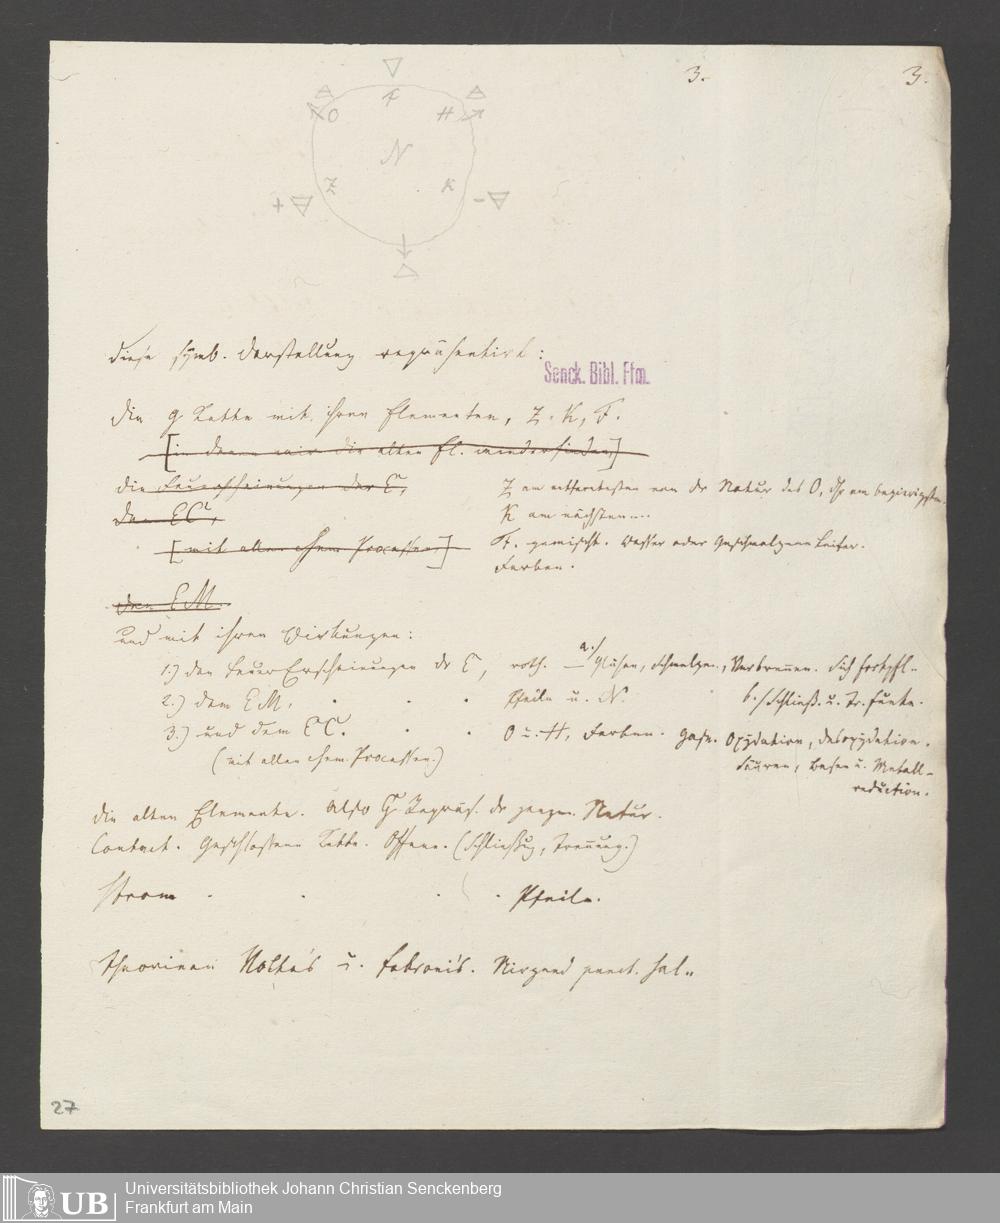 3. 3.
F
O H
N
Z K
+ -
diese symb. Darstellung repräsentirt:
Senck. Bibl. Ffm.
die g Kette mit ihren Elementen, Z. K, F.
[in denen wir die alten El. wiederfinden,]
die Feuererscheinungen der E,
Z am entferntesten von der Natur des O, ihr am begierigsten.
den EC,
K am nächsten....
[mit allen chem Processen,]
F. gemischt. Wasser oder Geschmolzene Leiter.
Farben.
den EM.
und mit ihren Wirkungen:
1.) den FeuerErscheinungen der E, roth. — a./ Glühen, Schmelzen, Verbrennen. Sich fortpfl..
2.) dem EM. . . Pfeile u. N. b./ Schließ. u. Tr. funke.
3.) und dem EC. . . O u. H, Farben. Gase. Oxydation, desoxydation.
(mit allen chem. Processen.) Säuren, Basen u. Metall-
reduction.
die alten Elemente. Also Repräs. der ganzen Natur.
Contact. Geschlossene Kette. Offene. (Schließug, Trennung.)
Strom . . . . Pfeile.
Theorieen Volta's u. Fabroni's. Nirgend
27
UB
Universitätsbibliothek Johann Christian Senckenberg
Frankfurt am Main